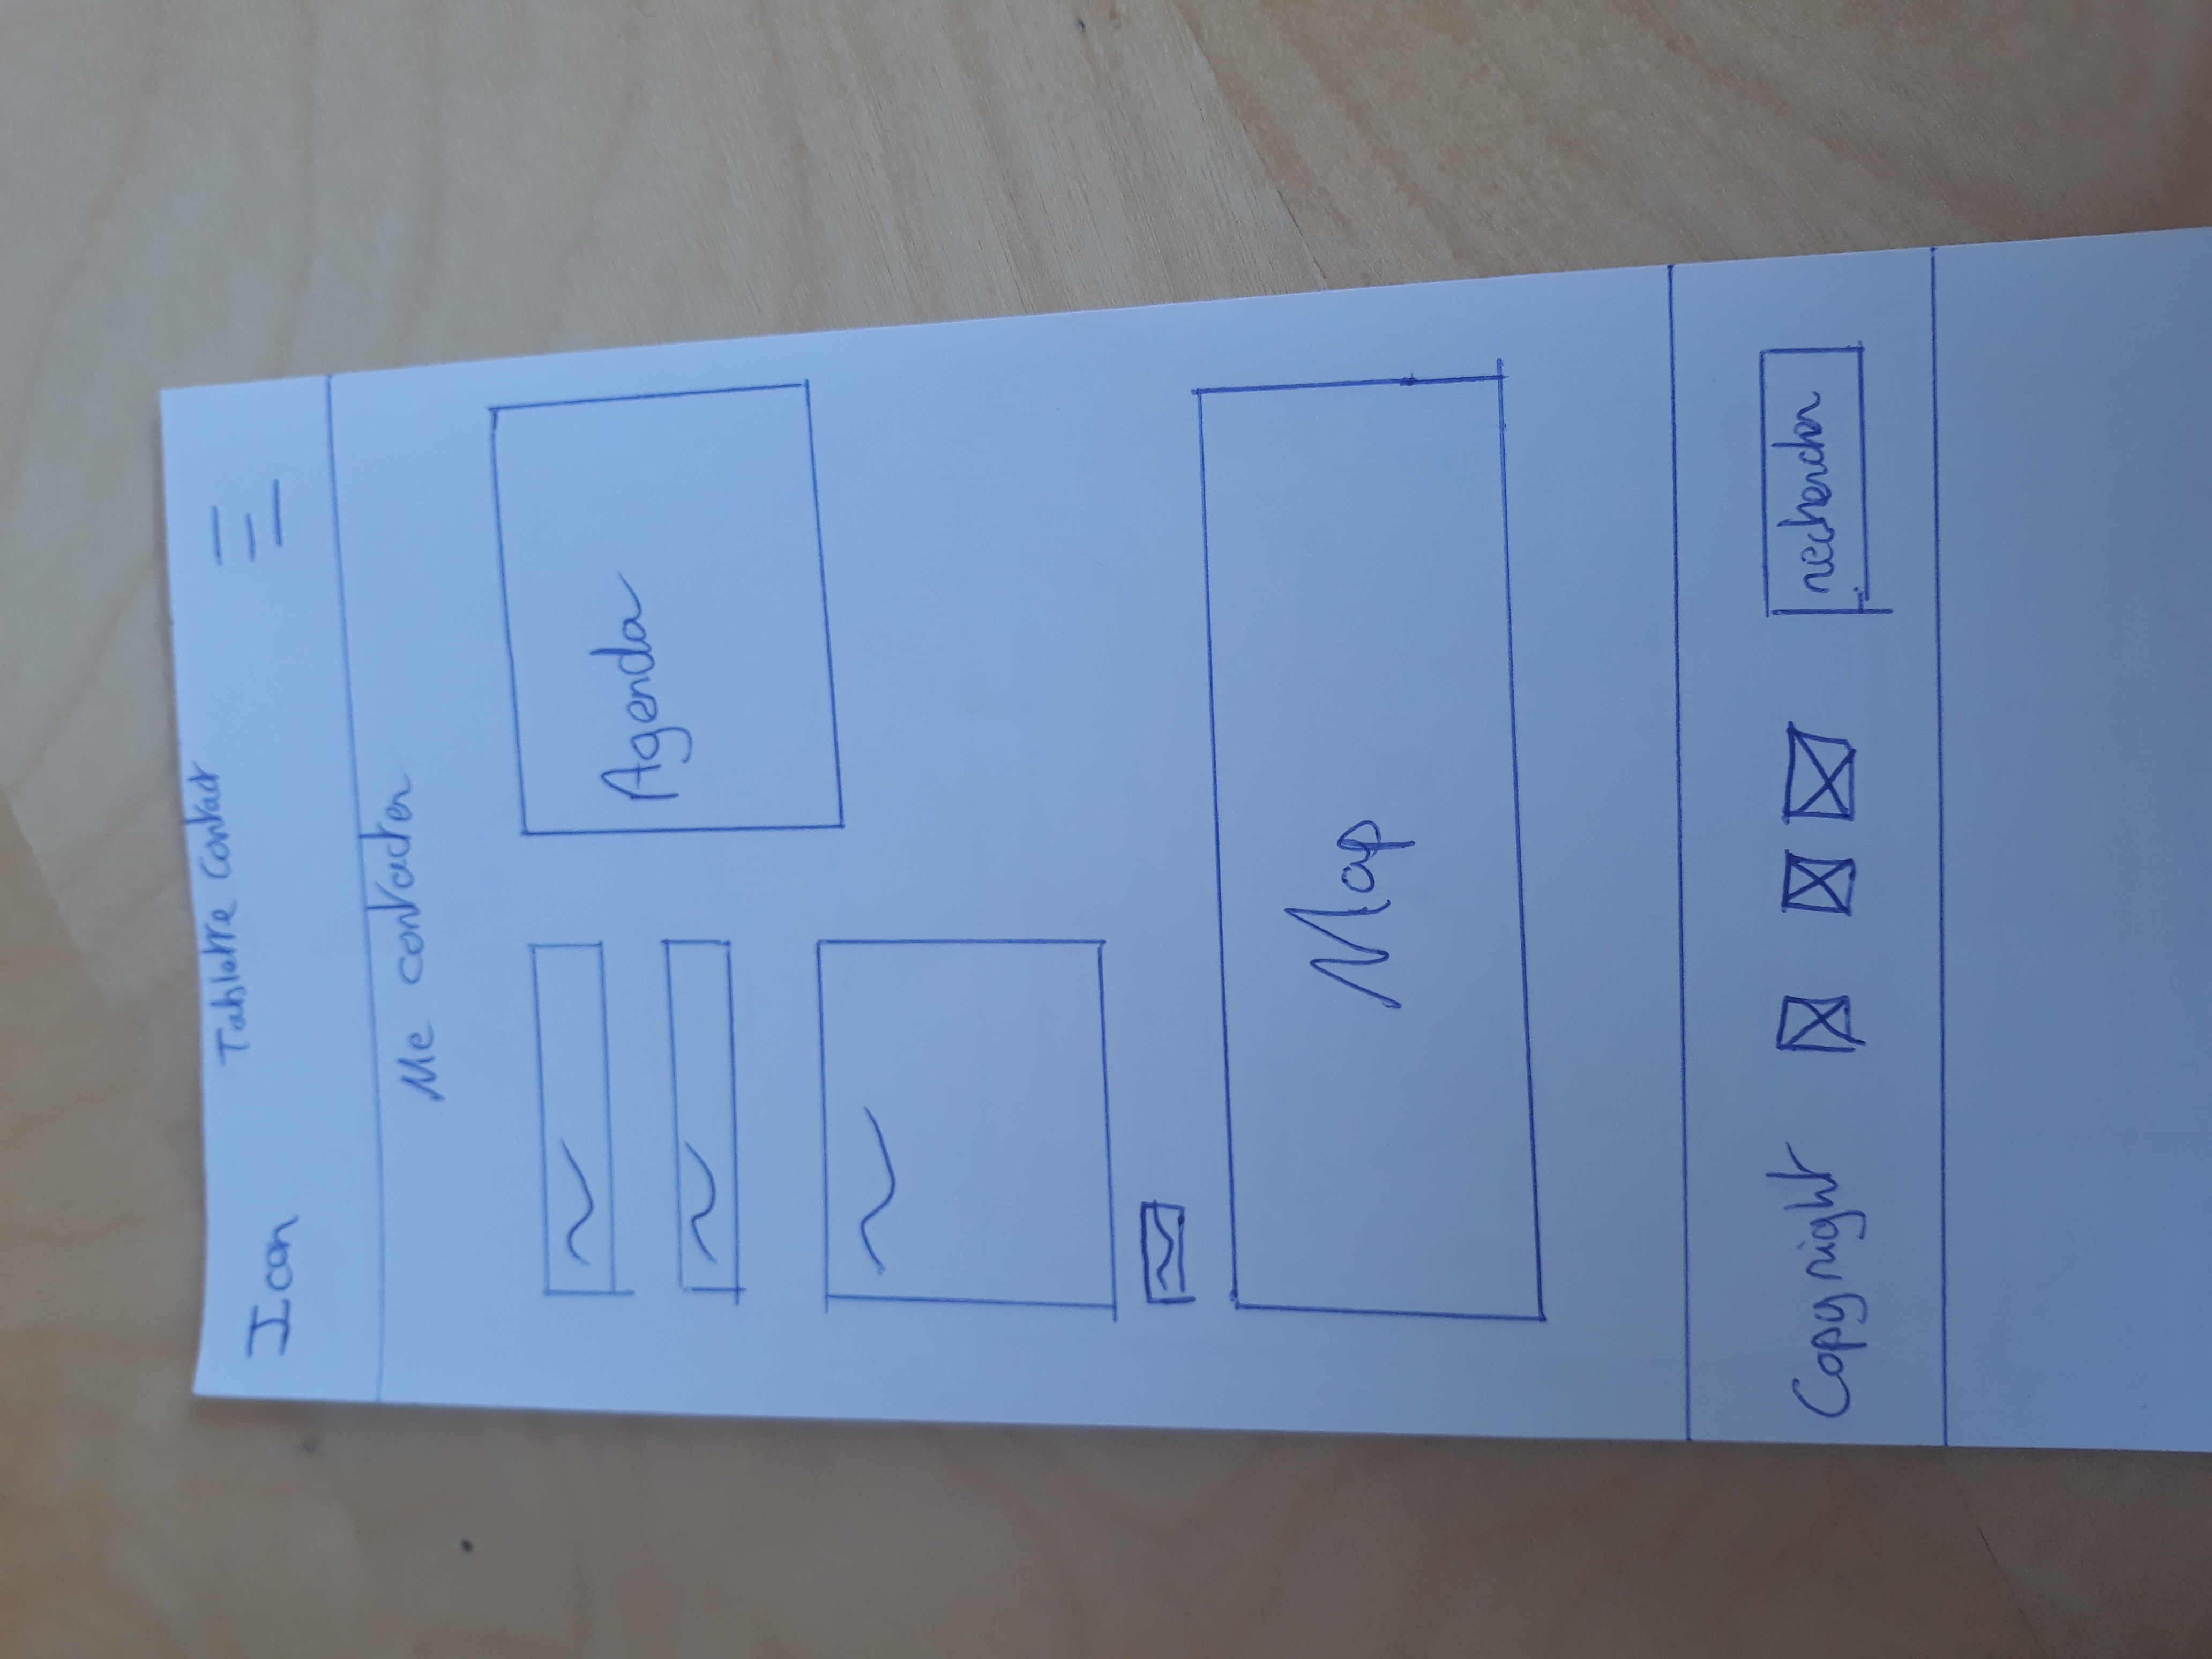 Tablette Contact
Icon
Me contacter
Agenda
Map
Copyright
rechercher